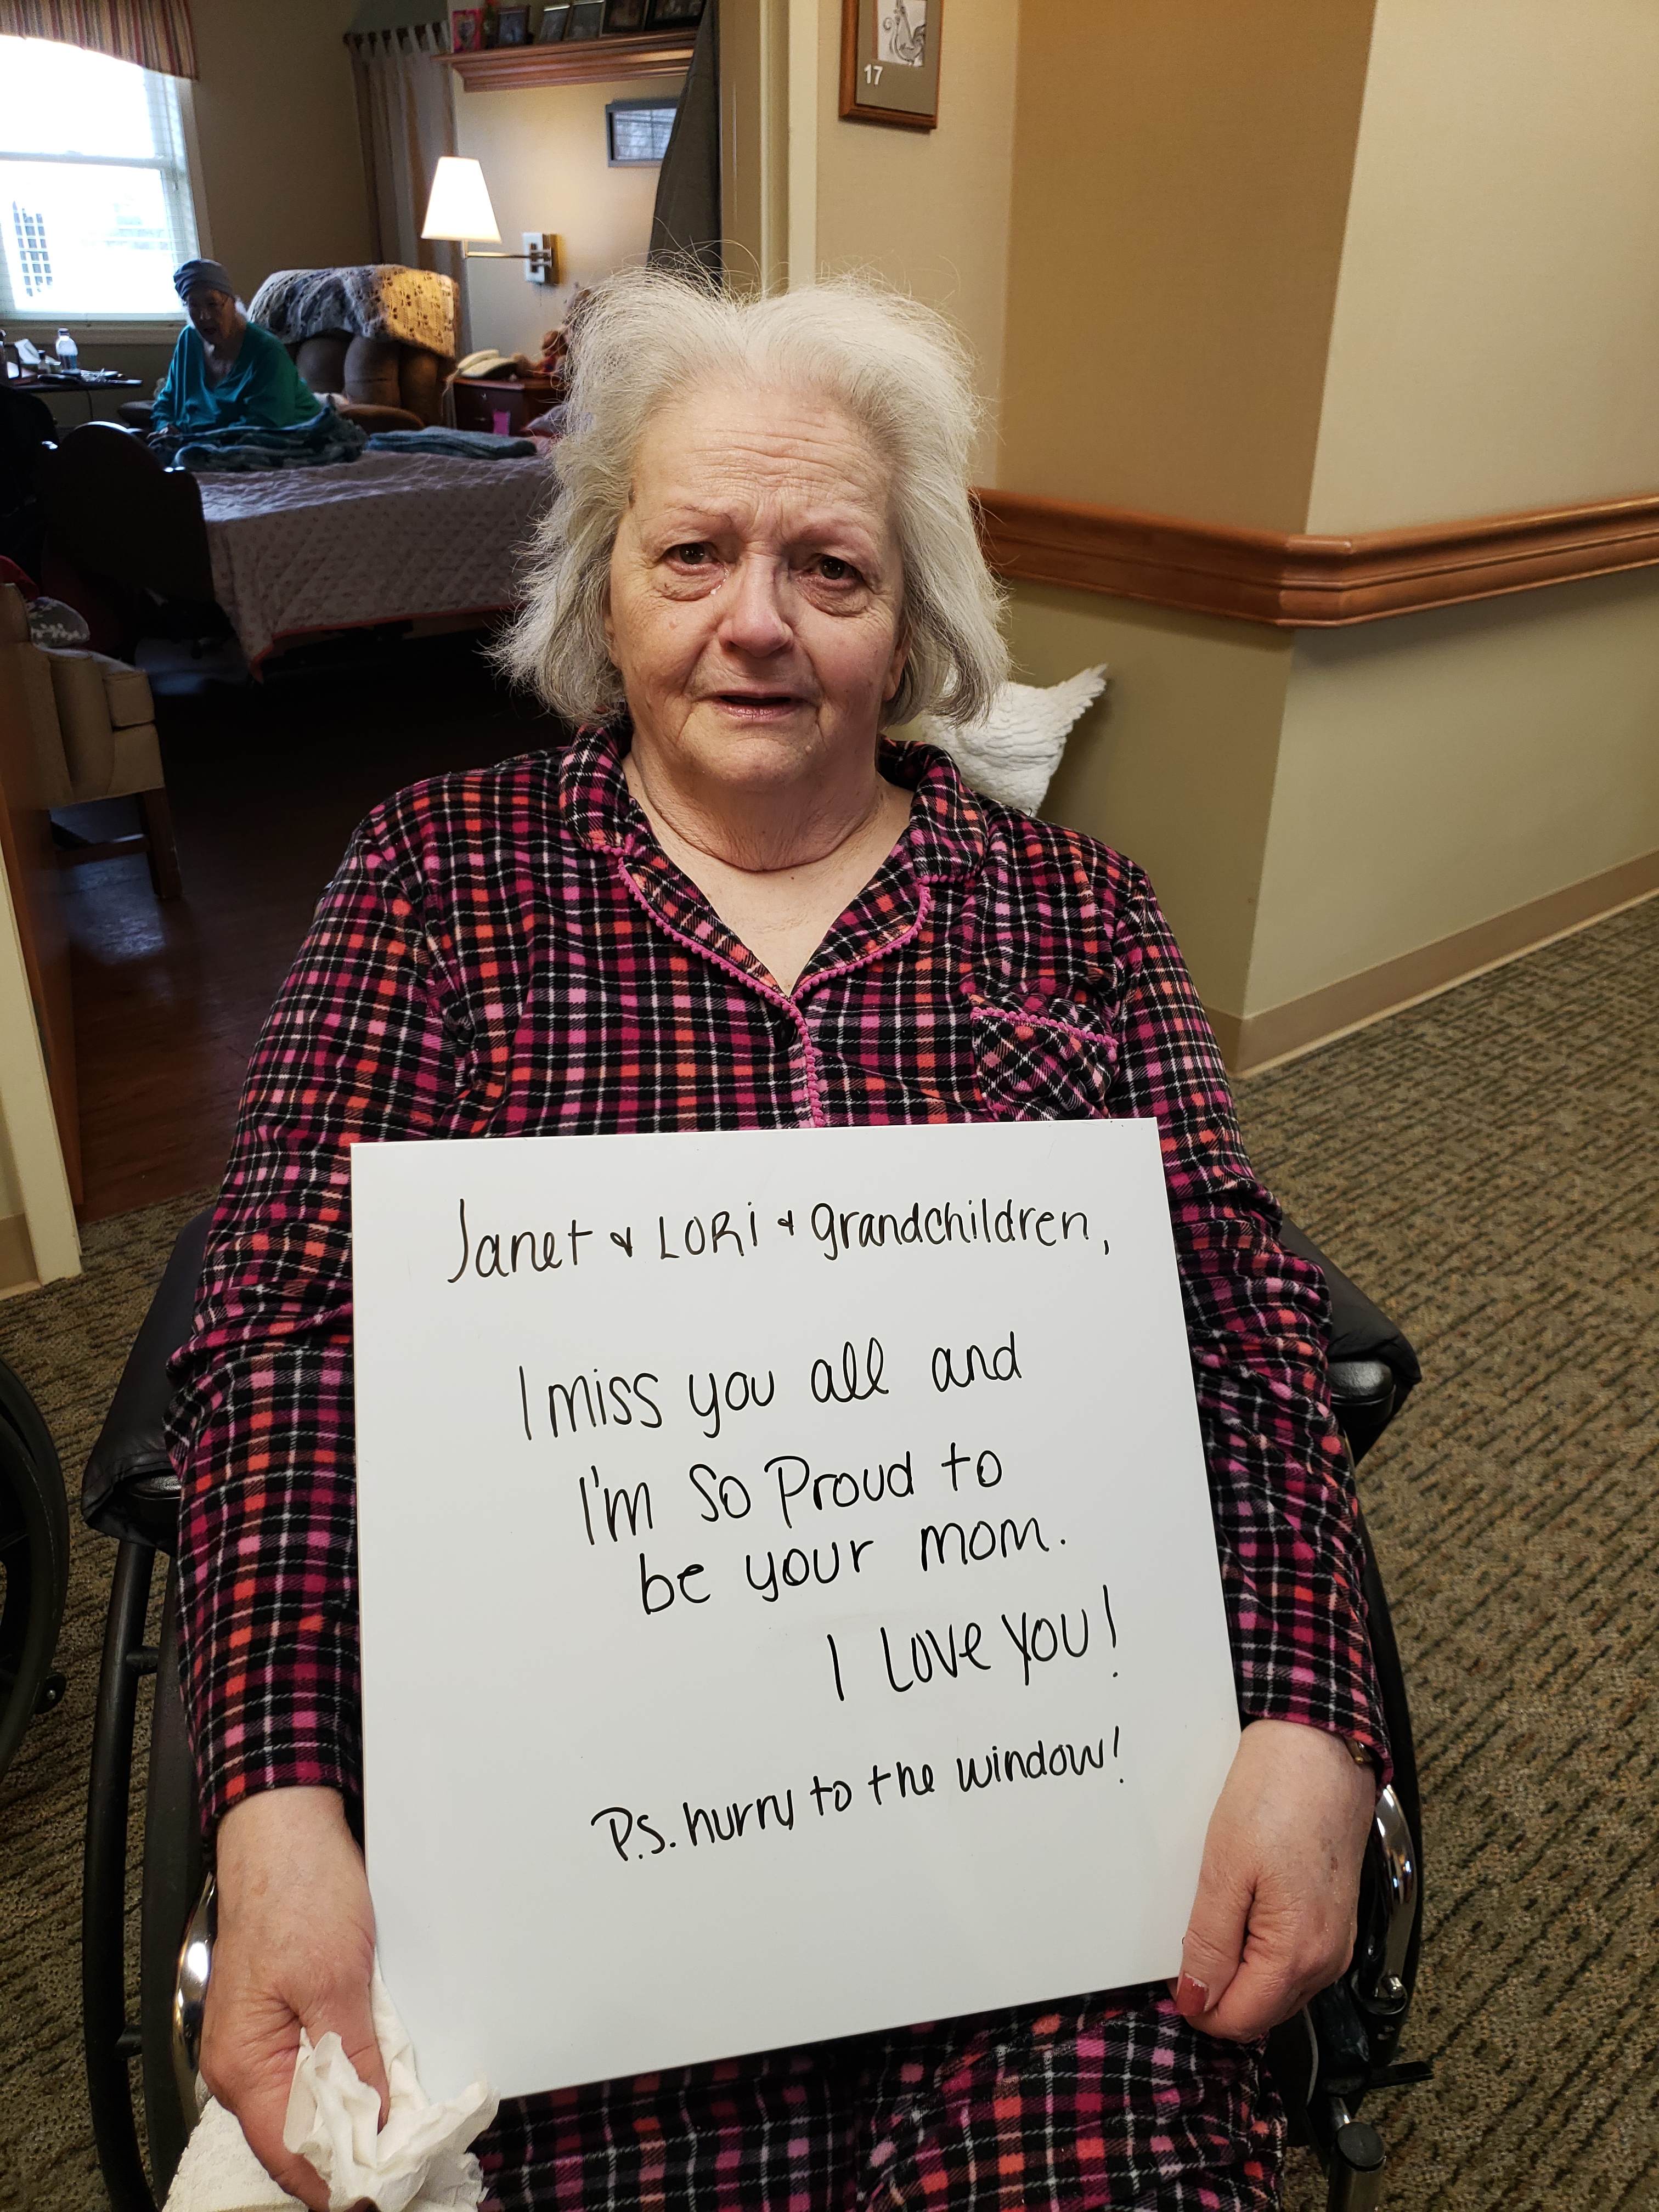 17
Janet & LORi & grandchildren,
I miss you all and
I'm so Proud to
be your mom.
I Love you!
P.S. hurry to the window!